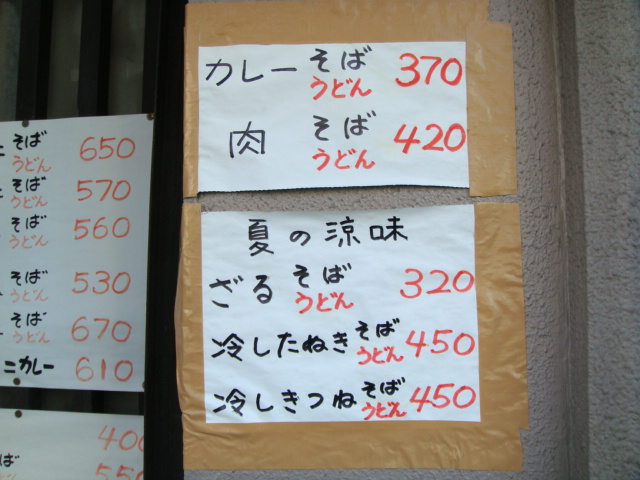 カレー そば うどん 370
肉 そば うどん 420
夏の涼味
ざる そば うどん 320
冷したぬき そば うどん 450
冷しきつね そば うどん 450
そば うどん 650
そば うどん 570
そば うどん 560
そば うどん 530
そば うどん 670
ニカレー 610
400
そば 550